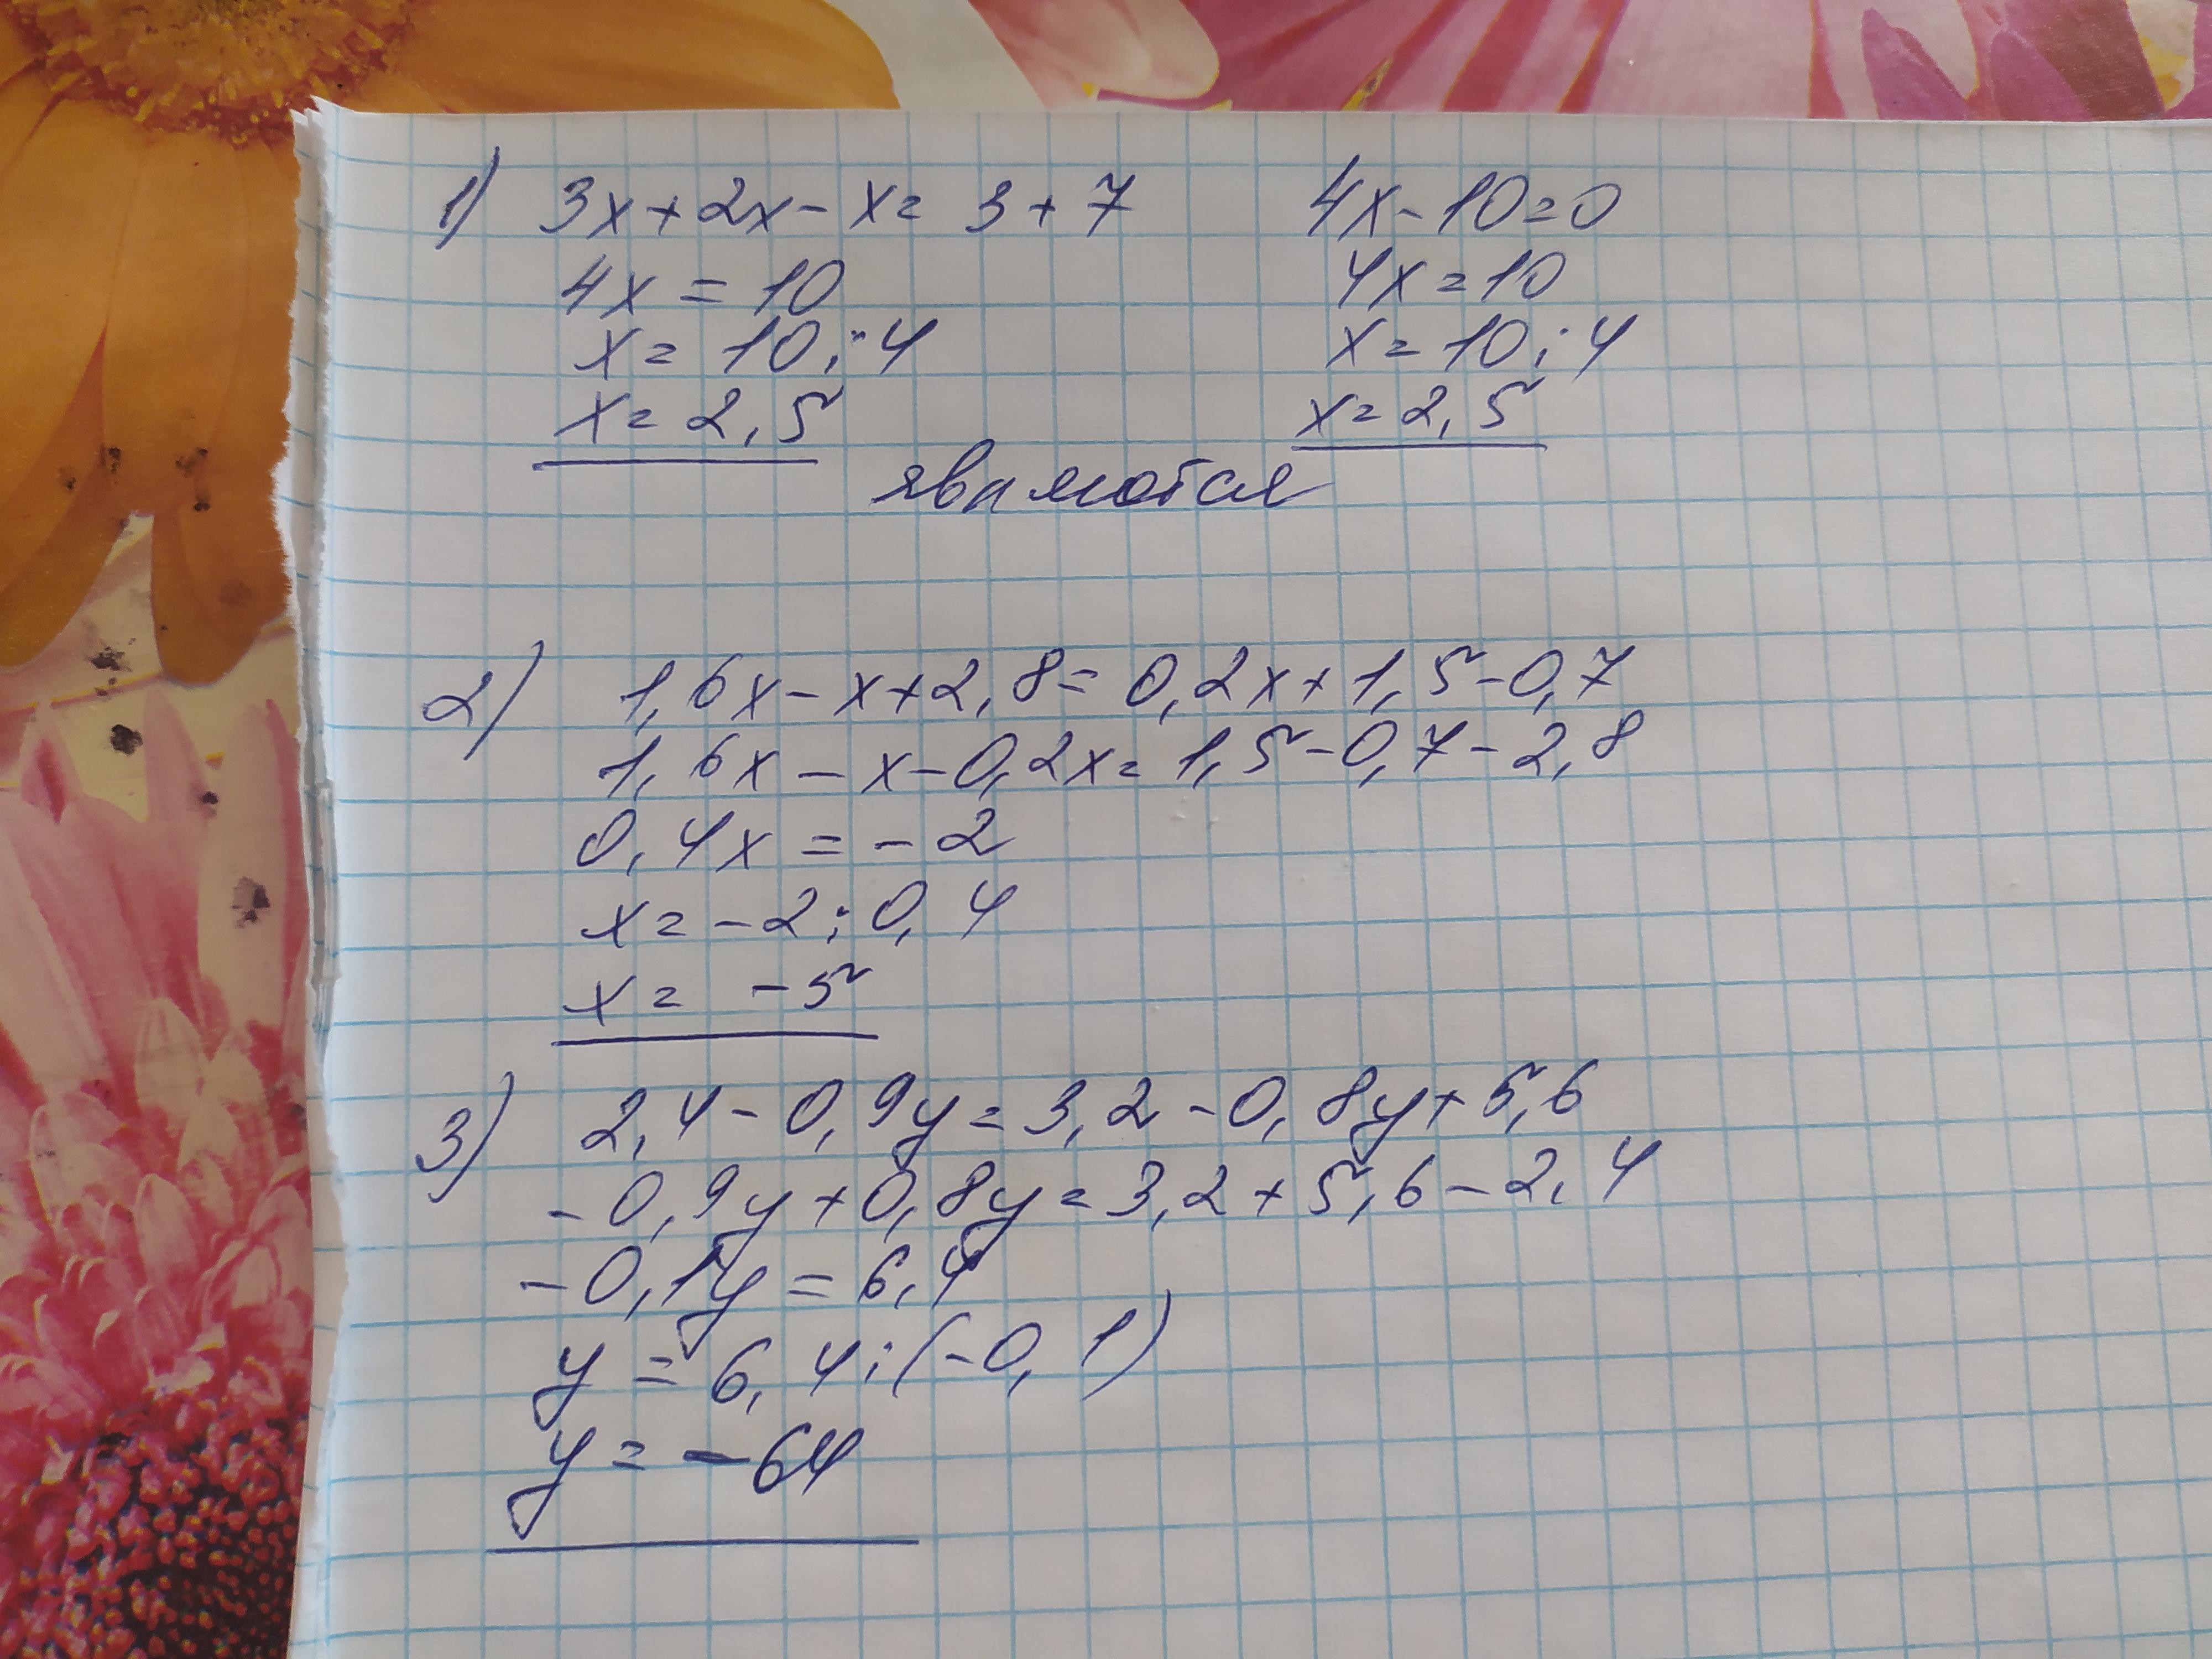 1) 3x+2x-x=3+7
4x=10
x=10:4
x=2,5
4x-10=0
4x=10
x=10:4
x=2,5
являются
2) 1,6x-x+2,8=0,2x+1,5-0,7
1,6x-x-0,2x=1,5-0,7-2,8
0,4x=-2
x=-2:0,4
x=-5
3) 2,4-0,9y=3,2-0,8y+5,6
-0,9y+0,8y=3,2+5,6-2,4
-0,1y=6,4
y=6,4:(-0,1)
y=-64